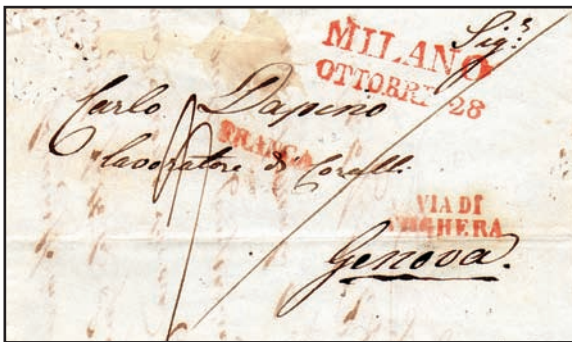 Sig.r
MILANO
OTTOBRE 28
Carlo Dapino
FRANCA
lavoratore di Coralli
VIA DI
VOGHERA
Genova.